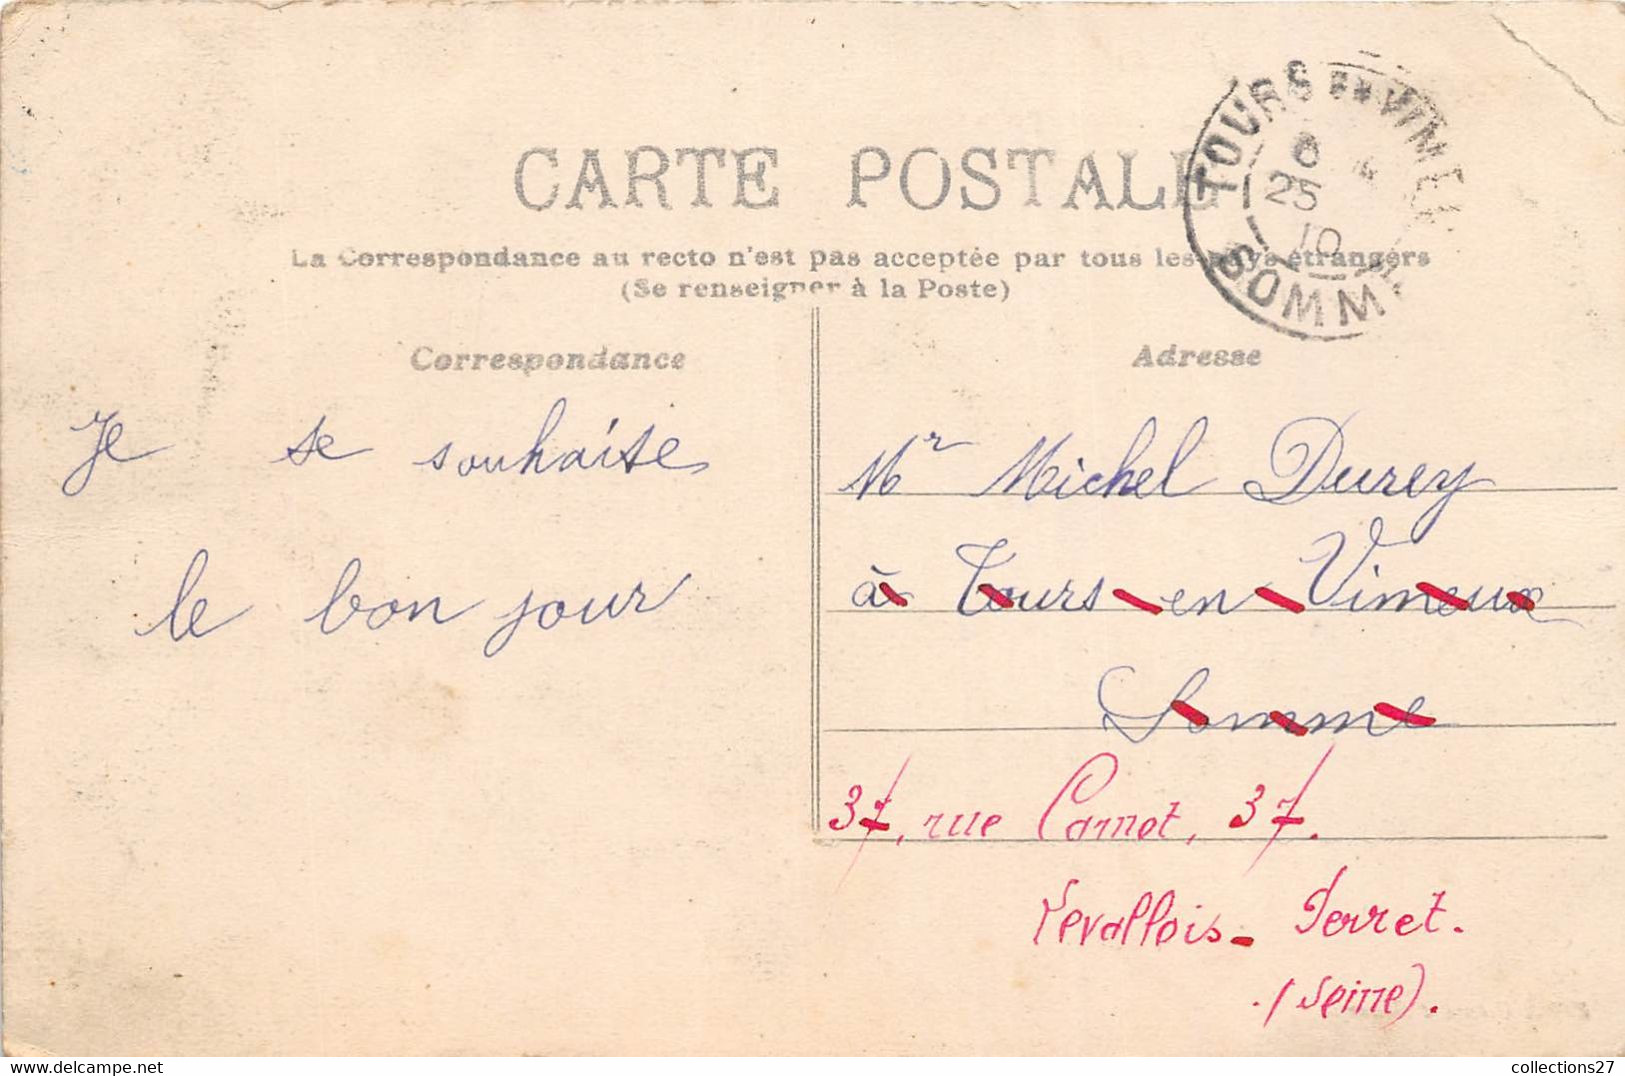 CARTE POSTALE
La Correspondance au recto n'est pas acceptée par tous les pays étrangers
(Se renseigner à la Poste)
TOURS EN VIMEU
6
25
10
SOMME
Correspondance
Adresse
Je te souhaite
le bon jour
Mr Michel Durey
à Tours-en-Vimeux
Somme
37, rue Carnot, 37.
Levallois-Perret.
(Seine).
collections27